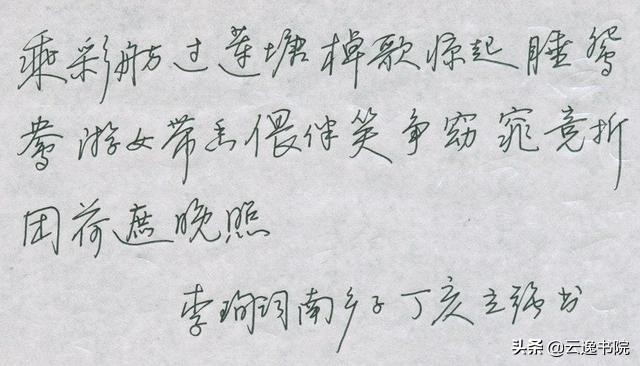 乘彩舫过莲塘棹歌惊起睡鸳
鸯游女带香偎伴笑争窈窕竞折
团荷遮晚照
李珣词南乡子丁亥立强书
头条@云逸书院